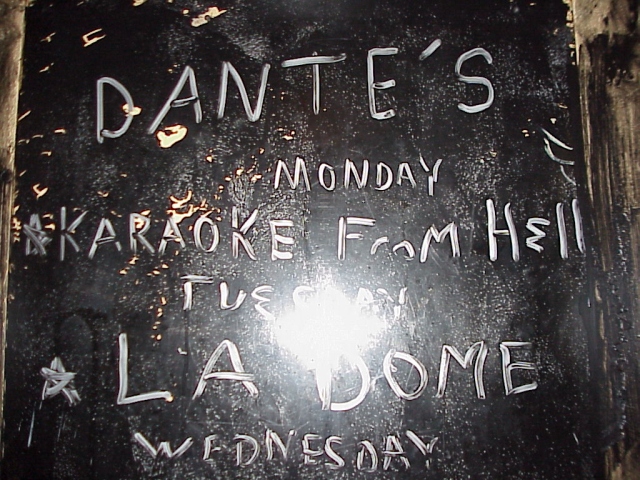 DANTE'S
MONDAY
KARAOKE FROM HELL
TUESDAY
LA DOME
WEDNESDAY